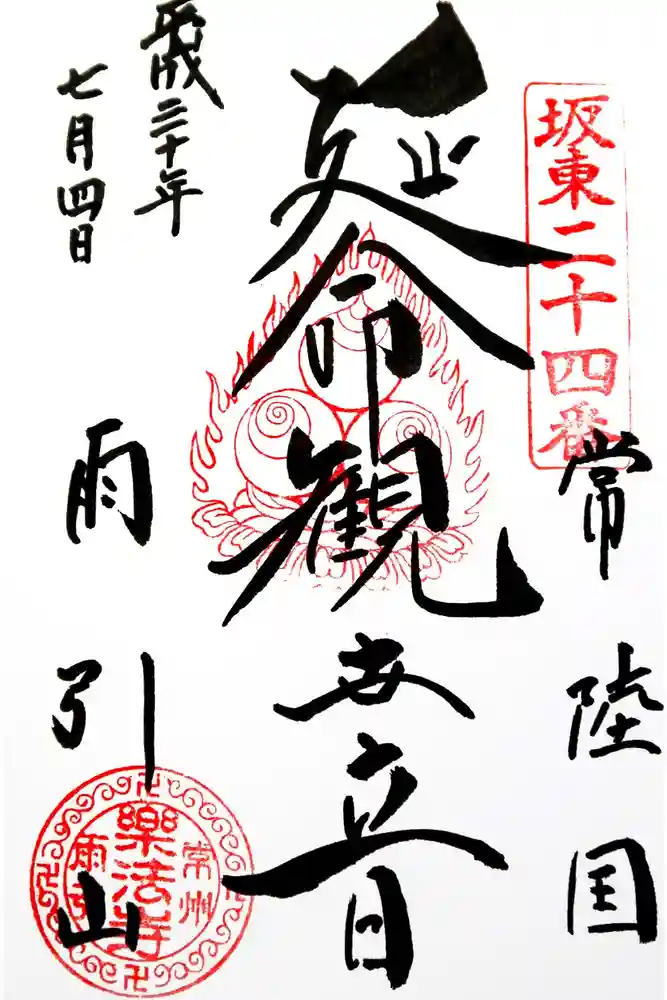 坂東二十四番
常陸国
延命観世音
雨引山
平成三十年
七月四日
常州
樂法寺
雨引